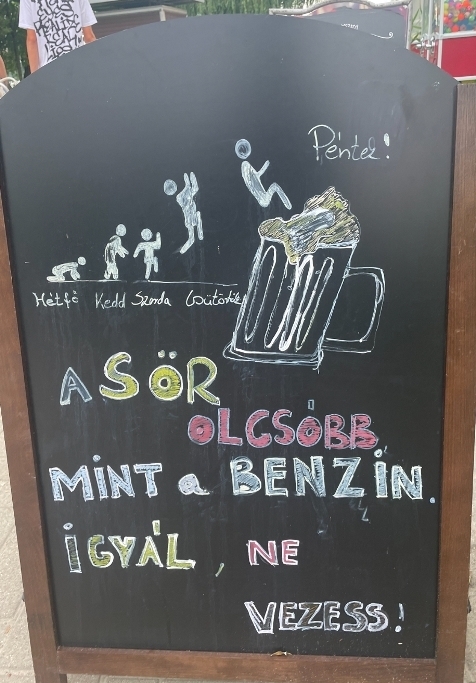 Péntek!
Hétfő Kedd Szerda Csütörtök
A SÖR
OLCSÓBB
MINT a BENZIN.
IGYÁL, NE
VEZESS!